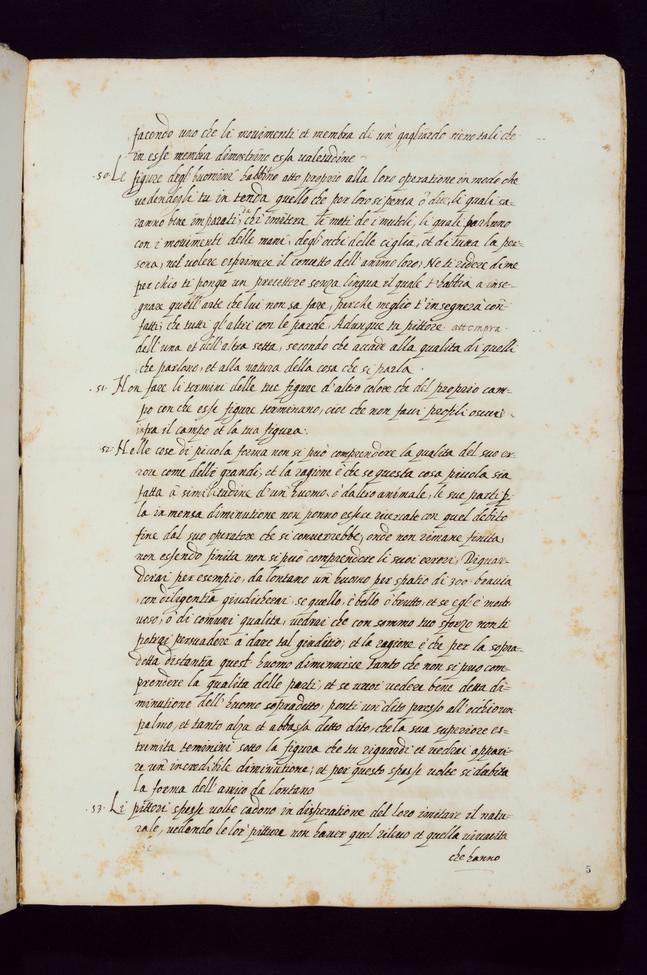 facendo uno che li movimenti et membra di un gagliardo sieno tali che
in esse membra dimostrino essa valetudine
.50. Le figure degl'huomini habbino atto proprio alla loro operatione in modo che
vedendogli tu intenda quello che per loro si pensa ò dice, li quali sa-
ranno bene imparati, da chi imiterà li moti de i mutoli, li quali parlano
con i movimenti delle mani, degl'occhi delle ciglia, et di tutta la per-
sona, nel volere esprimere il concetto dell'animo loro; Ne ti ridere di me
per chio ti ponga un precettore senza lingua il quale t'habbia à inse-
gnare quell'arte che lui non sa fare, perche meglio t'insegnerà con
fatti; che tutti gl'altri con le parole. Adunque tu pittore attempra
dell'una et dell'altra setta, secondo che accade alla qualita di quelli
che parlano, et alla natura della cosa che si parla.
.51. Non fare li termini delle tue figure d'altro colore che del proprio cam-
po con che esse figure terminano, cioe che non facci profili oscuri
infra il campo et la tua figura.
.52. Nelle cose di piccola forma non si può comprendere la qualita del suo er-
rore come delle grandi; et la ragione è che se questa cosa piccola sia
fatta à similitudine d'un huomo, ò d'altro animale, le sue parti p
la immensa diminutione non ponno esser ricercate con quel debito
fine dal suo operatore che si converrebbe, onde non rimane finita,
non essendo finita non si può comprendere li suoi errori. Riguar-
derai per esempio, da lontano un huomo per spatio di 300 braccia
, con diligentia giudicherai se quello, è bello ò brutto, et se egl'è mostr
uoso, ò di comuni qualita, vedrai che con sommo tuo sforzo non ti
potrai persuadere à dare tal giuditio; et la ragione è che per la sopra-
detta distantia quest'huomo diminuisce tanto che non si può com-
prendere la qualita delle parti, et se vuoi vedere bene detta di-
minutione dell'huomo sopradetto, ponti un dito presso all'occhio un
palmo, et tanto alza et abbassa detto dito, che la sua superiore es-
tremita termini sotto la figura che tu riguardi et vedrai appari-
re un'incredibile diminutione; et per questo spesse volte si dubita
la forma dell'amico da lontano
.53. Li pittori spesse volte cadono in disperatione del loro imitare il natu-
rale, vedendo le lor pitture non haver quel rilievo et quella vivacita
che hanno
5